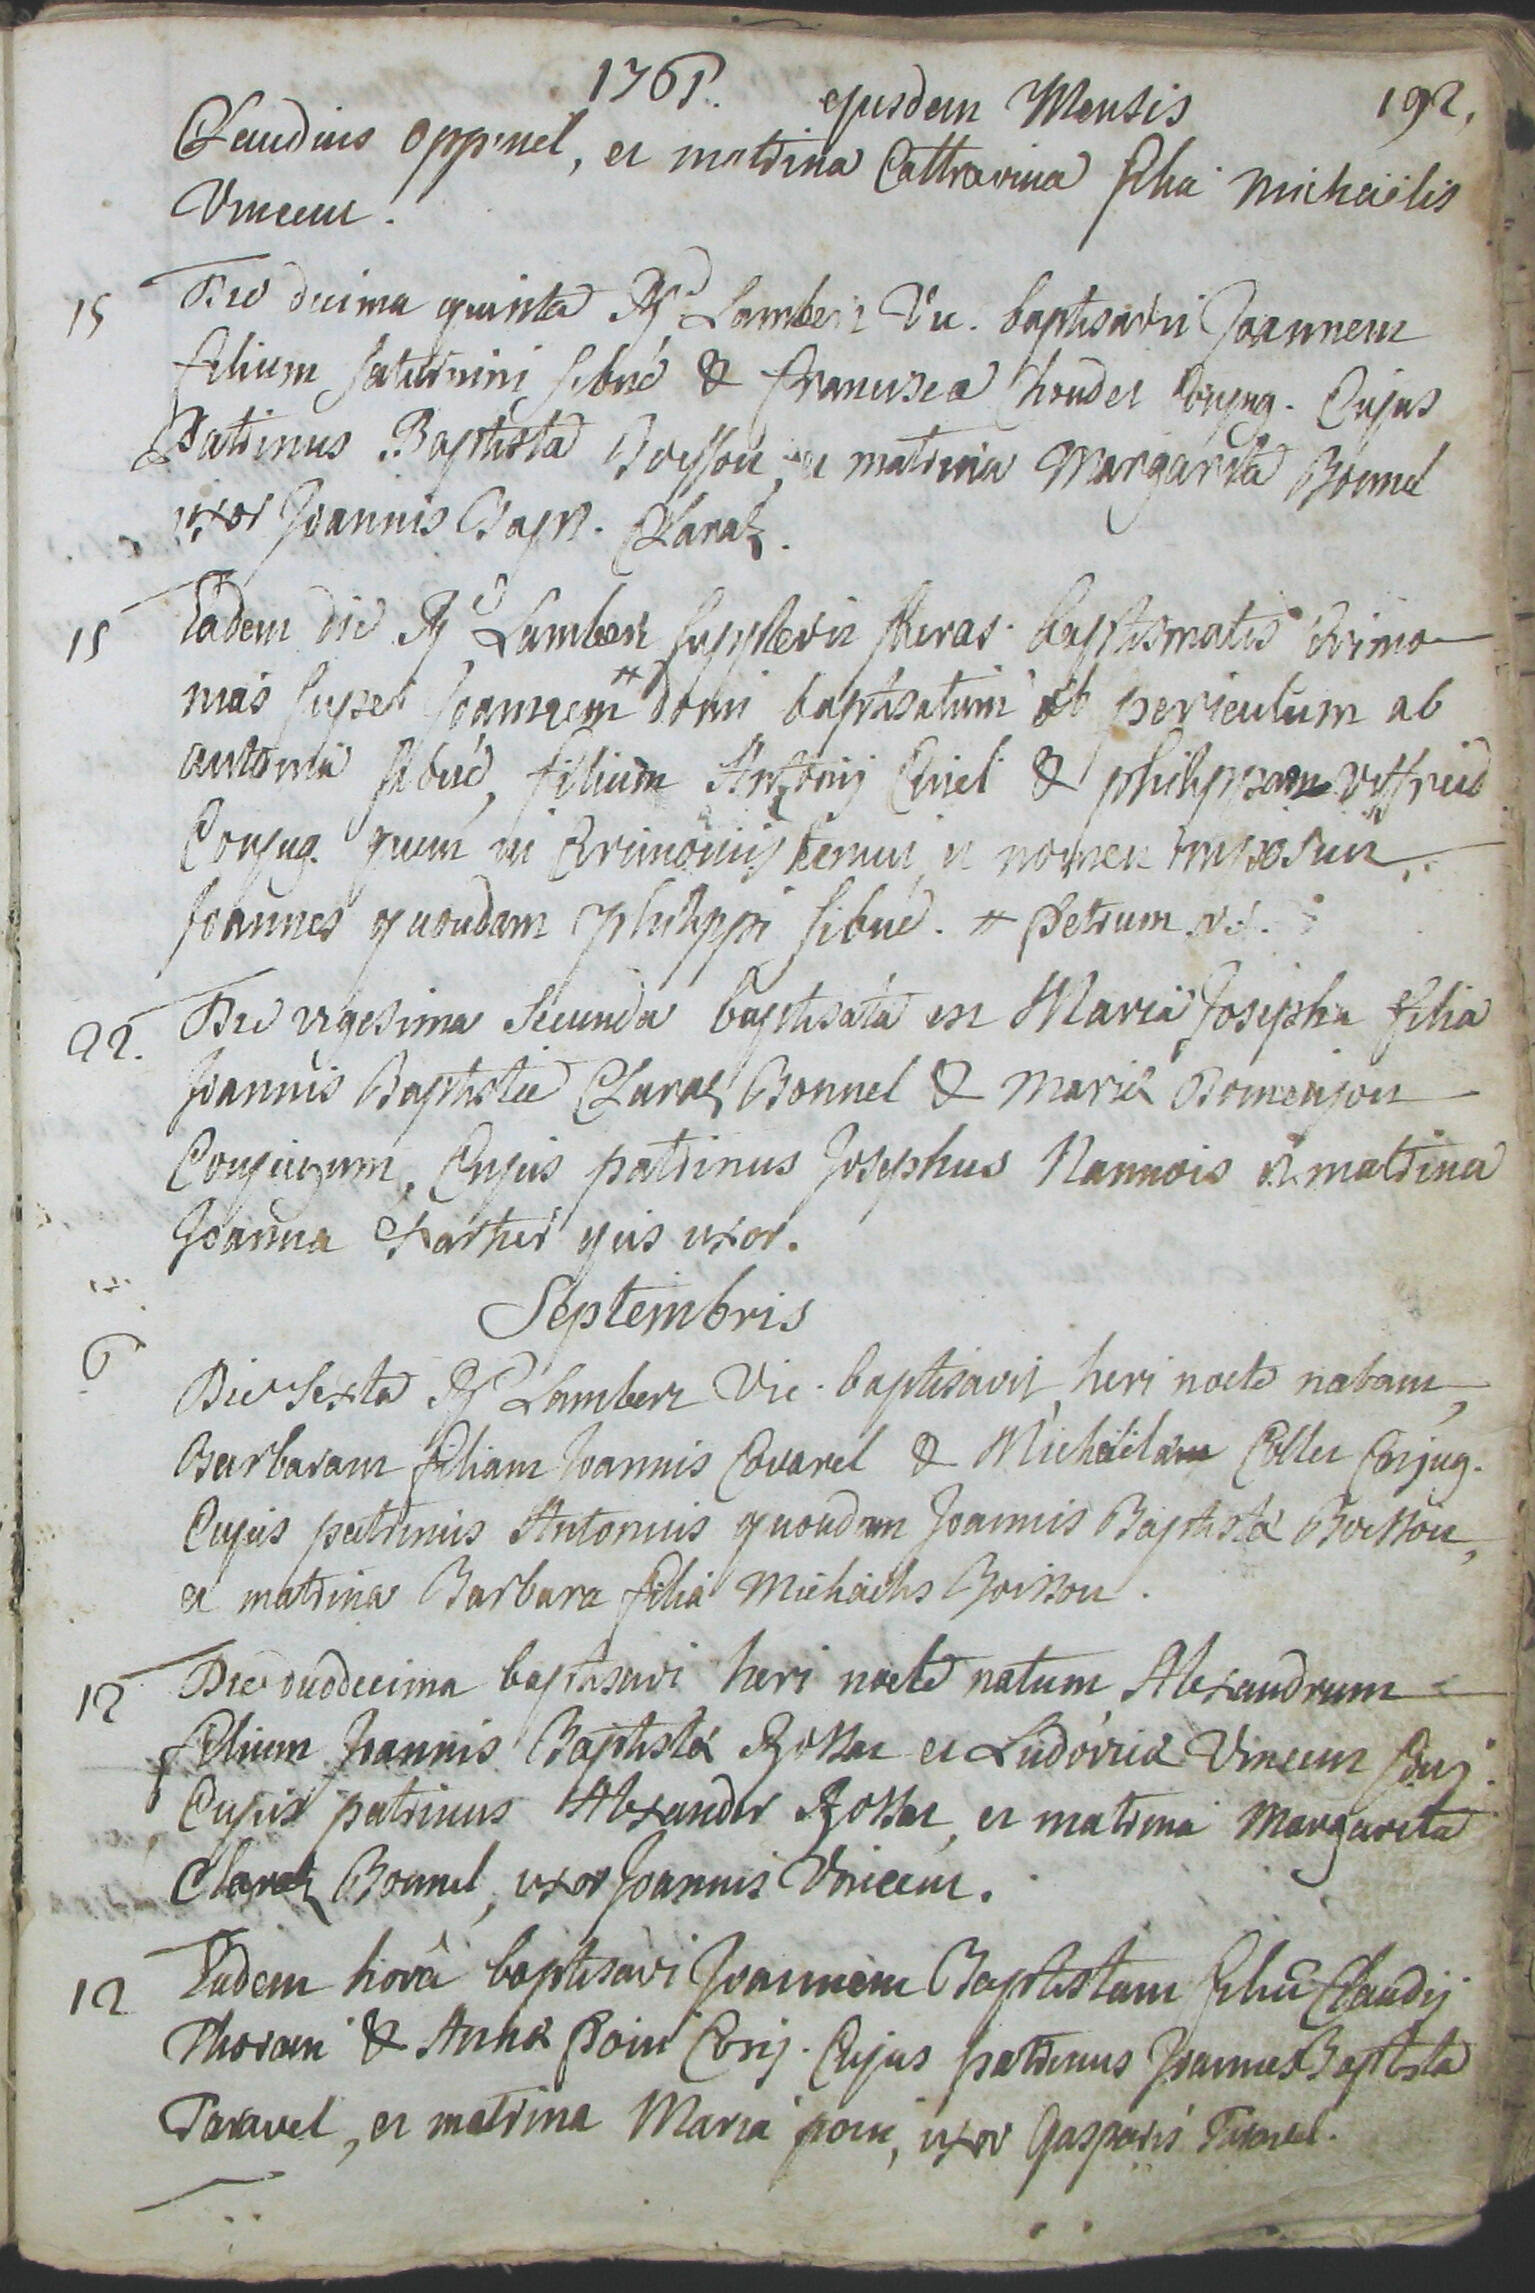 1761. ejusdem Mensis 192,
Claudius Oppinel, et matrina Cattharina filia Michaëlis
Vincent.
15 Die decima quinta Rd Lambert Vic. baptisavit Joannem
filium Saturnini Sibué & franciscæ Choudet Conjug. Cujus
Patrinus Baptista Boisson, et matrina Margarita Bonnel
uxor Joannis Bapt. Claraz.
15 Eadem die Rd Lambert supplevit sacras baptismatis Cærimo-
nias super Joannem # domi baptisatum ob periculum ab
antonia Sibué, filium Antonij Curel & philippæ
Conjug. quem in Cærimoniis tenuit, et nomen imposuit
Joannes quondam philippi Sibué. # Petrum
22. Die vigesima secunda baptisata est Maria Josepha filia
Joannis Baptistæ Claraz Bonnel & Mariæ Domenjon
Conjugum, Cujus patrinus Josephus Nannois et matrina
Joanna ejus uxor.
Septembris
6 Die sexta Rd Lambert Vic. baptisavit, heri nocte natam,
Barbaram filiam Joannis Covarel & Michaëlæ Collet Conjug.
Cujus patrinus Antonius quondam Joannis Baptistæ Boisson,
et matrina Barbara filia Michaëlis Boisson.
12 Die duodecima baptisavi heri nocte natum Alexandrum
filium Joannis Baptistæ Rossat et Ludovicæ Vincent Conj.
Cujus patrinus Alexander Rossat, et matrina Margarita
Claraz Bonnel, uxor Joannis Vincent.
12 Eadem horâ baptisavi Joannem Baptistam filiū Claudij
Thorani & Annæ Poin Conj. Cujus patrinus Joannes Baptista
Taravel, et matrina Maria poin, uxor Gasparis Taravel.